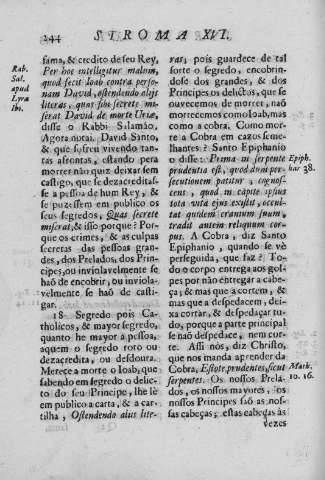 244 STROMA XVI.
fama, & credito de seu Rey,
Per hoc intelligitur malum,
quod fecit Ioab contra perso-
nam David, ostendendo alijs
literas, quas sibi secretè mi-
serat David de morte Uriæ,
disse o Rabbi Salamão.
Agora notai. David Santo,
& que sofreu vivendo tan-
tas afrontas, estando pera
morrer não quiz deixar sem
castigo, que se dezacreditas-
se a pessoa de hum Rey, &
se puzessem em publico os
seus segredos, Quas secretè
miserat, & isso porque? Por-
que os crimes, & as culpas
secretas das pessoas gran-
des, dos Prelados, dos Prin-
cipes, ou inviolavelmente se
hão de encobrir, ou inviola-
velmente se hão de casti-
gar.
18 Segredo pois Ca-
tholicos, & mayor segredo,
quanto he mayor a pessoa,
aquem o segredo roto ou
dezacredita, ou desdoura.
Merece a morte o Ioab, que
sabendo em segredo o delic-
to do seu Principe, lhe lè
em publico a carta, & a car-
tilha, Ostendendo alijs lite-
Rab.
Sal.
apud
Lyrã
ibi.
ras; pois guardece de tal
sorte o segredo, encobrin-
dose dos grandes, & dos
Principes os delictos, que se
ouvecemos de morrer, não
morrecemos como Ioab, mas
como a cobra. Como mor-
re a Cobra em cazos seme-
lhantes? Santo Epiphanio
o disse: Prima in serpente
prudentia est, quod dum per-
secutionem patitur, cognos-
cens, quod in capite ipsius
tota vita ejus existit, occul-
tat quidem craneum suum,
tradit autem reliquum cor-
pus. A Cobra, diz Santo
Epiphanio, quando se vè
perseguida, que faz? To-
do o corpo entrega aos gol-
pes por não entregar a cabe-
ça, & mas que a cortem, &
mas que a despedacem, dei-
xa cortar, & despedaçar tu-
do, porque a parte principal
se não despedace, nem cor-
te. Assi nós, diz Christo,
que nos manda aprender da
Cobra, Estote prudentes, sicut
serpentes. Os nossos Prela-
dos, os nossos mayores, os
nossos Principes são as nos-
sas cabeças; estas cabeças às
vezes
Epiph.
hær 38.
Math.
10. 16.